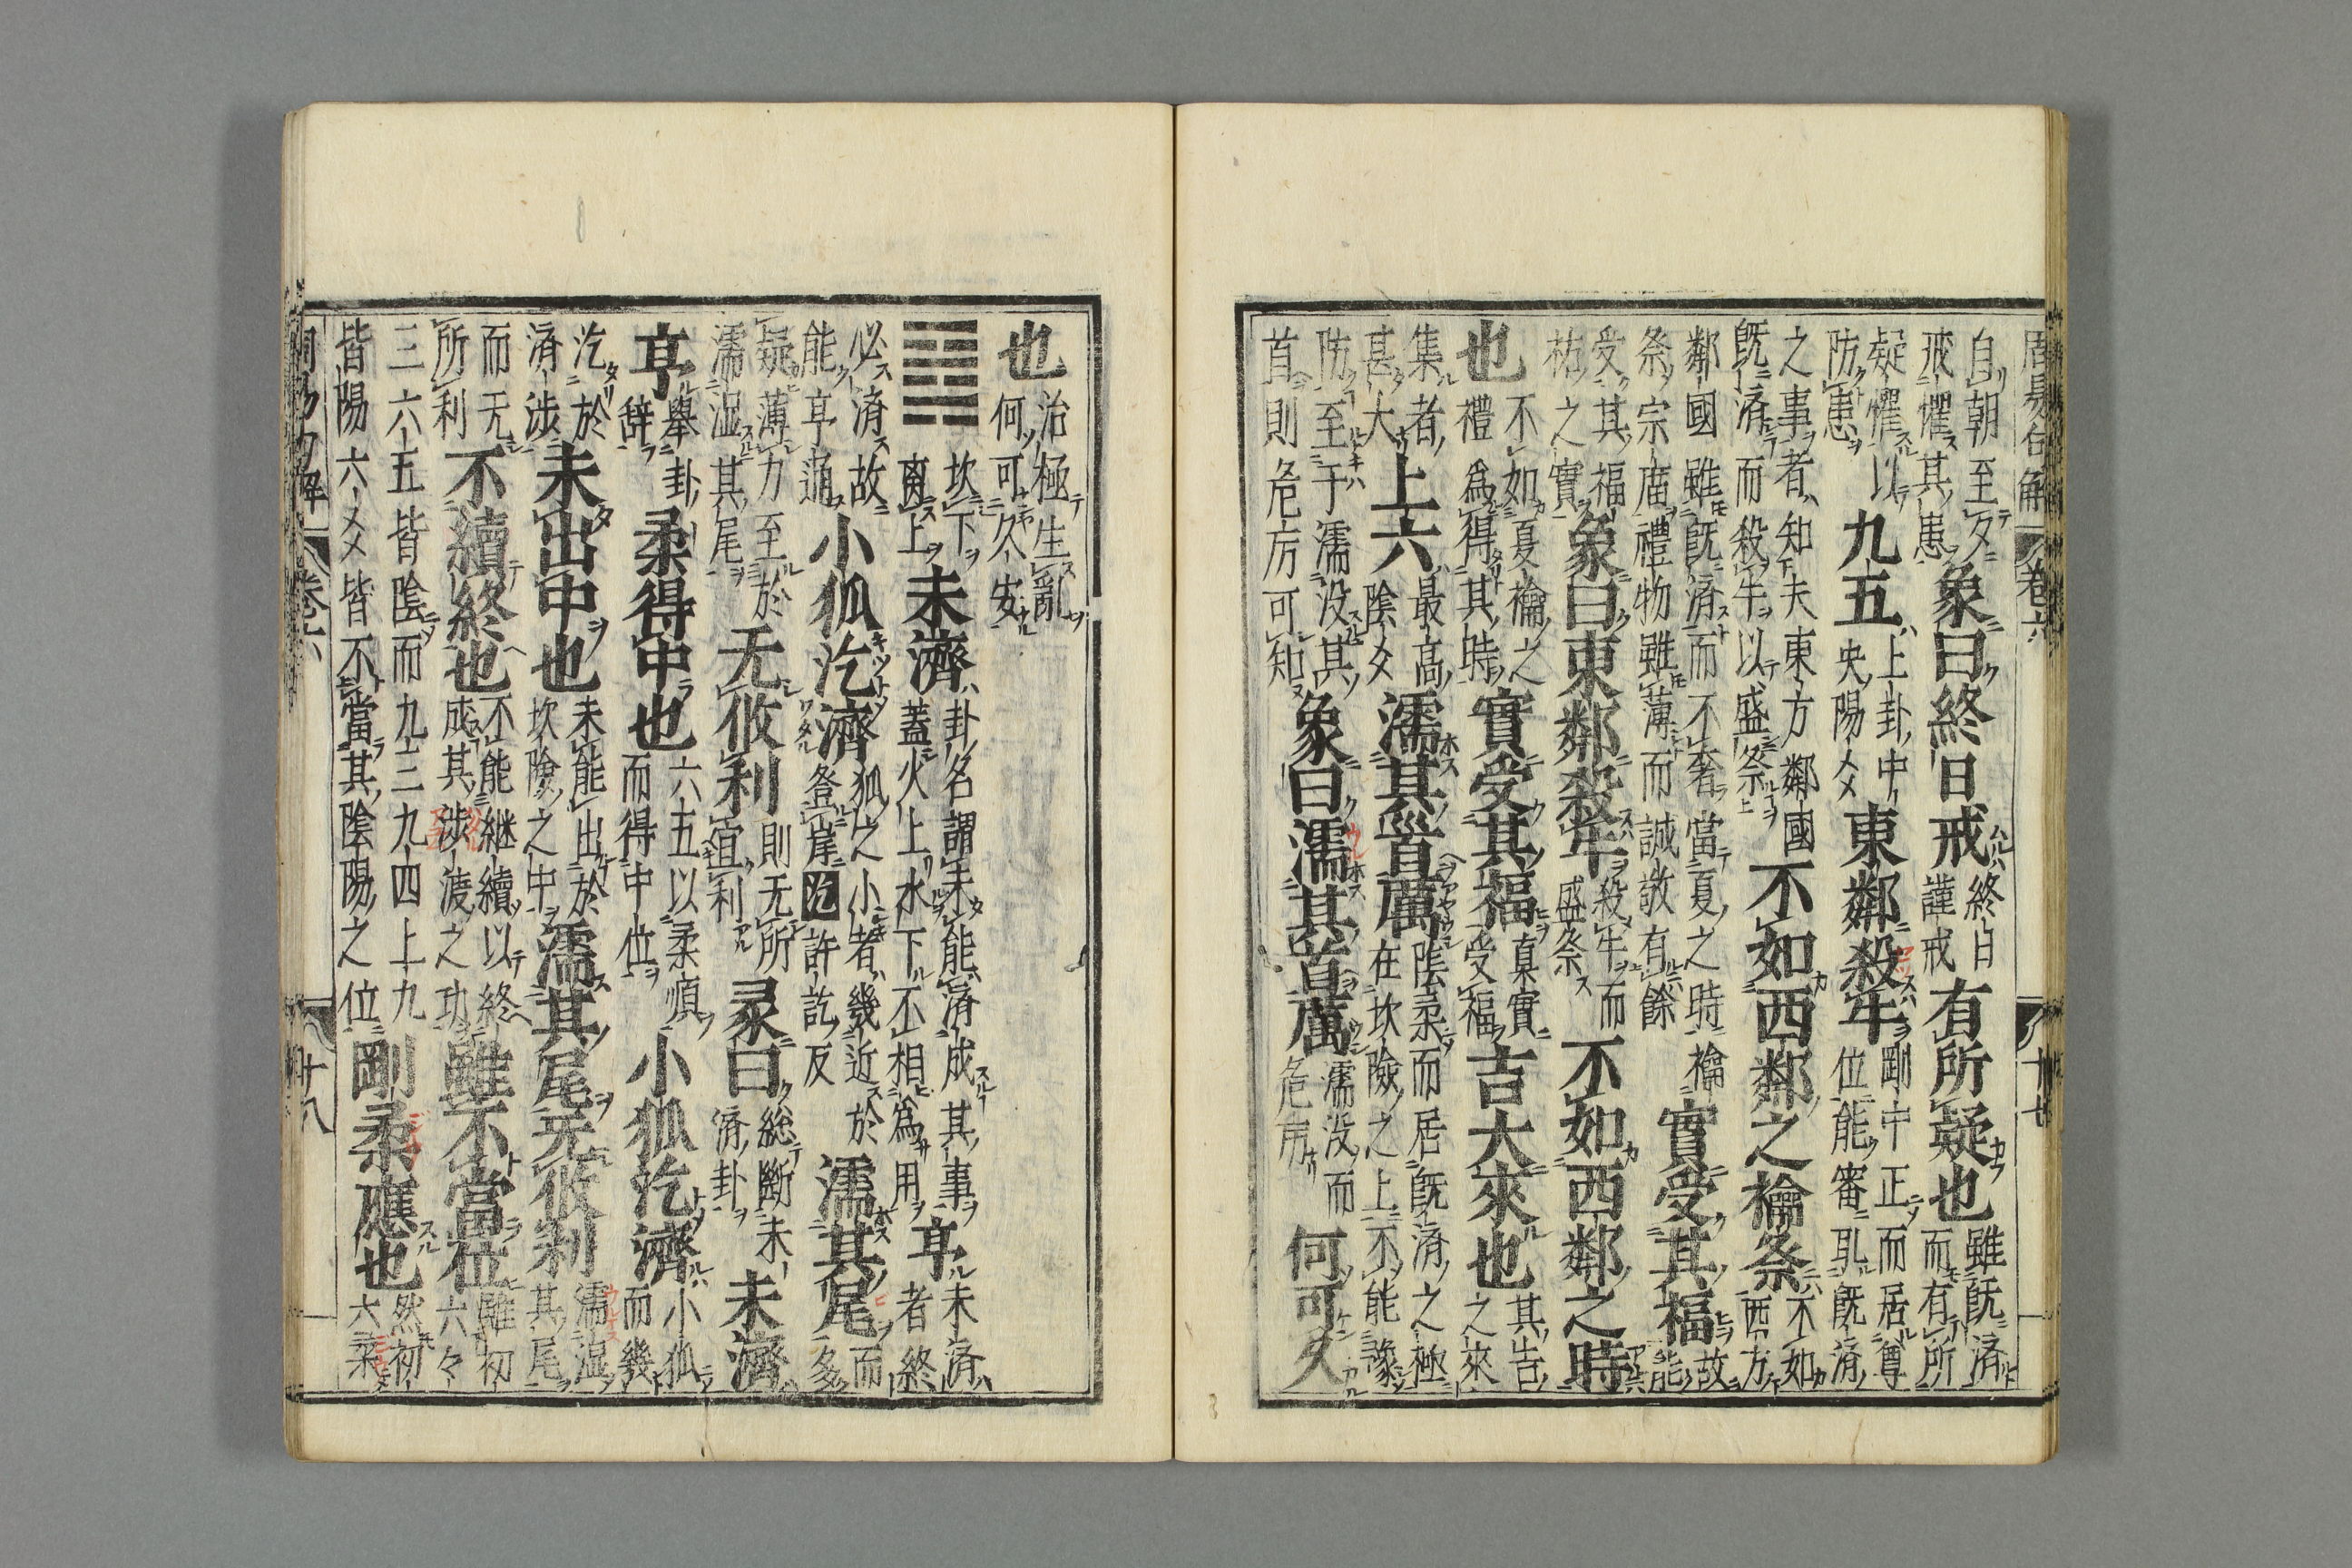 周易句解 卷六 十七
自朝至夕戒懼其患象曰終日戒終日謹戒有所疑也雖既濟而有所
疑懼以防患九五上卦中央陽爻東鄰殺牛剛中正而居尊位能審乱既濟
之事者知夫東方鄰國既濟而殺牛以盛祭不如西鄰之禴祭不如西方
鄰國雖既濟而不奢當夏之時禴祭宗庿禮物雖薄而誠敬有餘實受其福故能
受其福祐之實象曰東鄰殺牛殺牛而盛祭不如西鄰之時
也不如夏禴之禮為得其時實受其福真實受福吉大來也其吉之來
集者甚大上六最高陰爻濡其首厲陰柔而居既濟之極在坎險之上不能豫
防至于濡没其首則危厉可知象曰濡其首厲濡没而危厉何可久
也治極生亂何可久安
䷿坎下离上未濟卦名謂未能濟成其事蓋火上水下不相為用亨未濟者終
必濟故能亨通小狐汔濟狐之小者幾近於登岸汔許訖反濡其尾而多
疑薄力至於濡湿其尾无攸利則无所宜利彖曰総断未濟卦未濟
亨舉卦辞柔得中也六五以柔順而得中位小狐汔濟小狐而幾
汔於濟涉未出中也未能出於坎險之中濡其尾无攸利濡湿其尾
而无所利不續終也不能継續以終成其涉渡之功雖不當位雖初六々
三六五皆陰而九二九四上九皆陽六爻皆不當其陰陽之位剛柔應也然初六柔
周易句解 卷六 十八